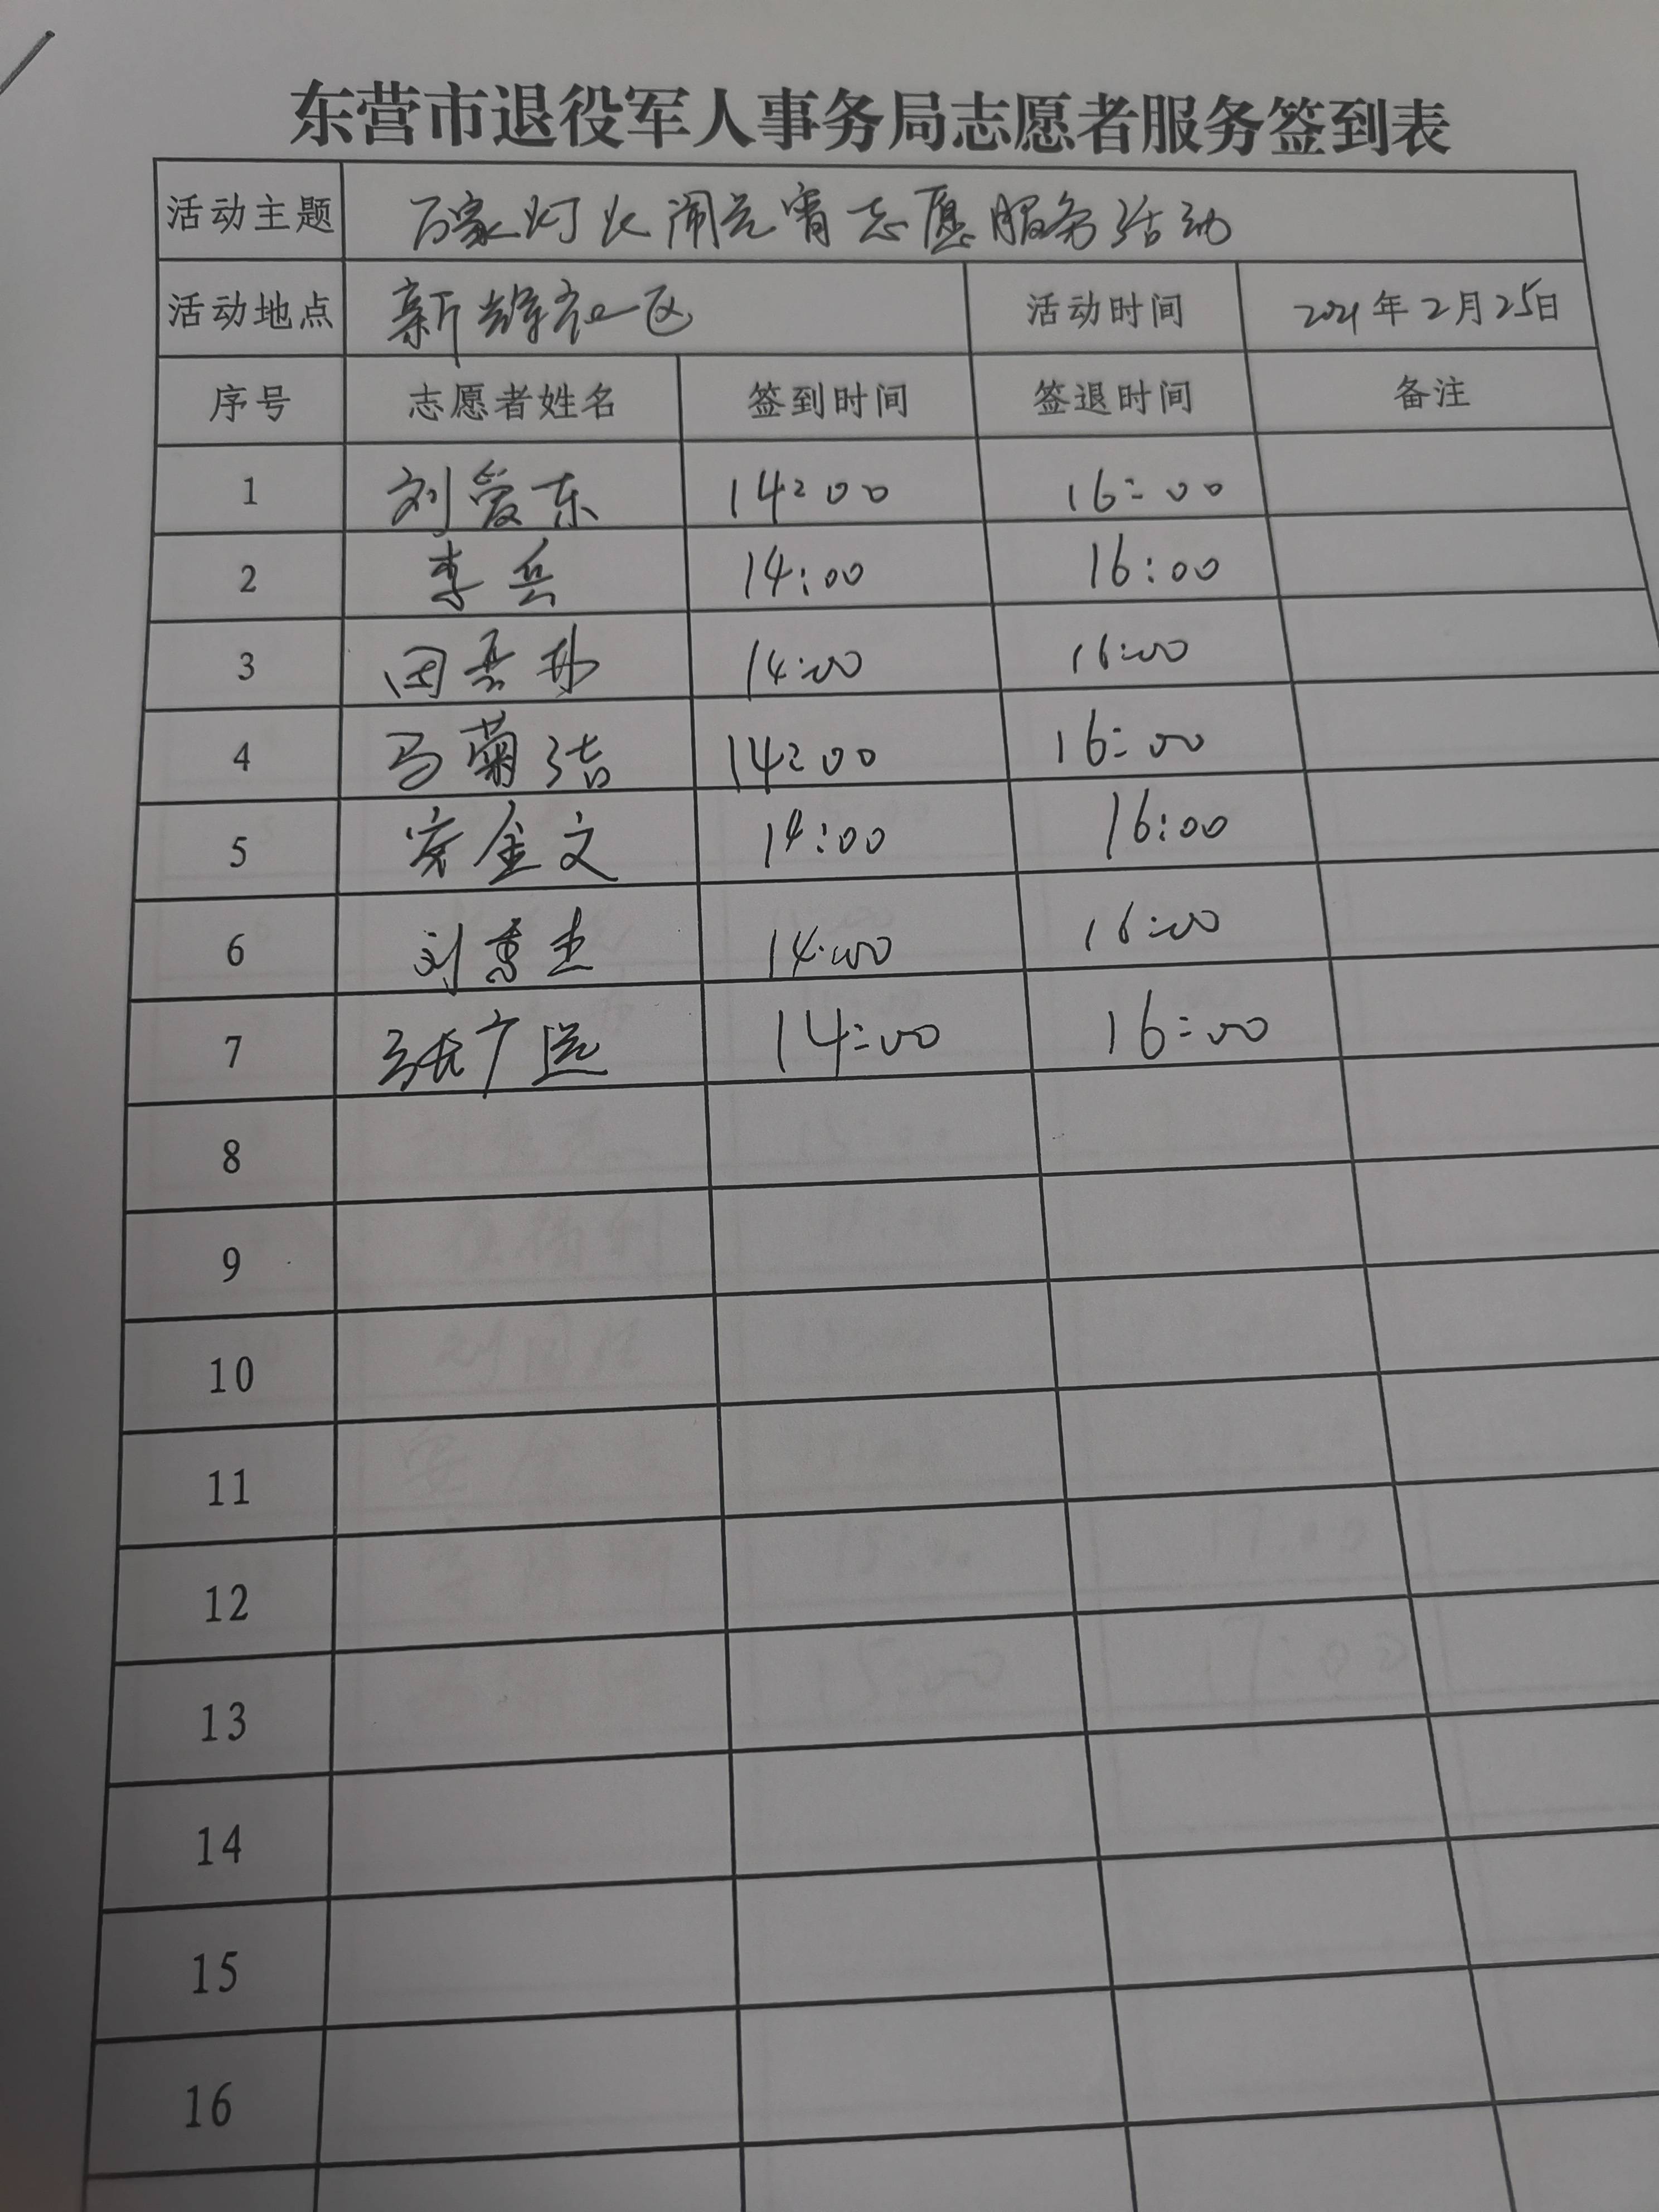 东营市退役军人事务局志愿者服务签到表
活动主题 万家灯火闹元宵志愿服务活动
活动地点 新辉社区 活动时间 2021年2月25日
序号 志愿者姓名 签到时间 签退时间 备注
1 刘爱东 14:00 16:00
2 李兵 14:00 16:00
3 14:00 16:00
4 马菊洁 14:00 16:00
5 宋金文 14:00 16:00
6 14:00 16:00
7 张广 14:00 16:00
8
9
10
11
12
13
14
15
16